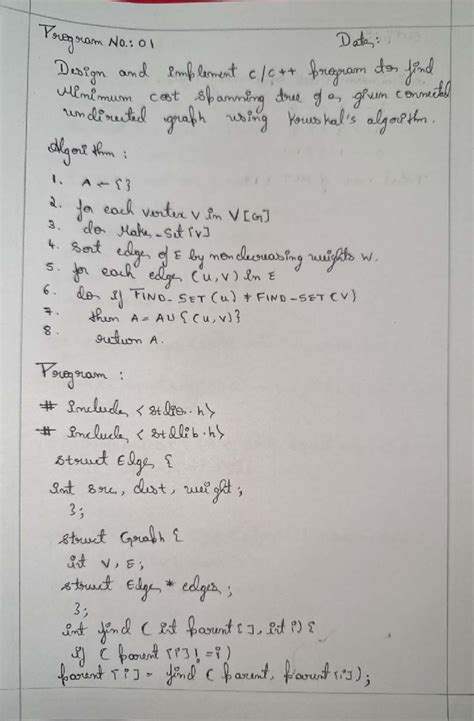 Program No.: 01 Date:
Design and implement c/c++ program to find
Minimum cost spanning tree of a given connected
undirected graph using kruskal's algorithm.
Algorithm :
1. A ← {}
2. for each vertex V in V[G]
3. do Make-Set[V]
4. Sort edges of E by nondecreasing weights w.
5. for each edge (u,v) In E
6. do if FIND-SET(u) ≠ FIND-SET(V)
7. then A = A∪{(u,v)}
8. return A.
Program :
# include <stdio.h>
# include <stdlib.h>
struct Edge {
int src, dest, weight;
};
struct Graph {
int V, E;
struct Edge * edges;
};
int find (int parent[], int i) {
if (parent[i] != i)
parent[i] = find (parent, parent[i]);